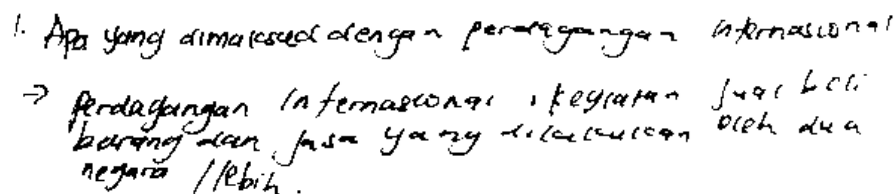 1. Apa yang dimaksud dengan perdagangan internasional
→ Perdagangan internasional, kegiatan jual beli
barang dan jasa yang dilakukan oleh dua
negara / lebih.